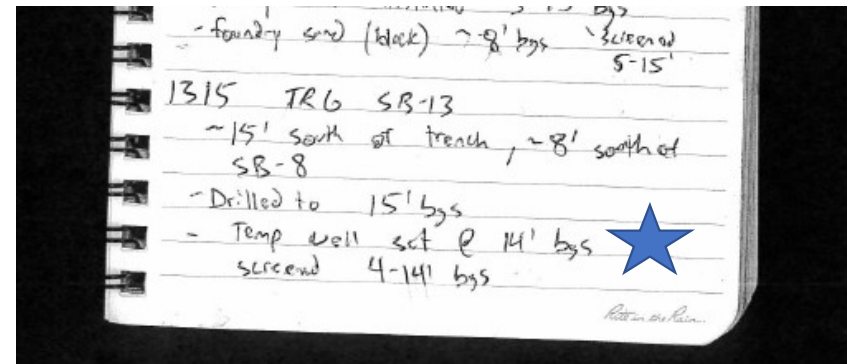 - foundry sand (black) ~8' bgs screened
5-15'
1315 TRG SB-13
~15' south of trench, ~8' south of
SB-8
- Drilled to 15' bgs
- Temp well set @ 14' bgs
screend 4-14' bgs
Rite in the Rain